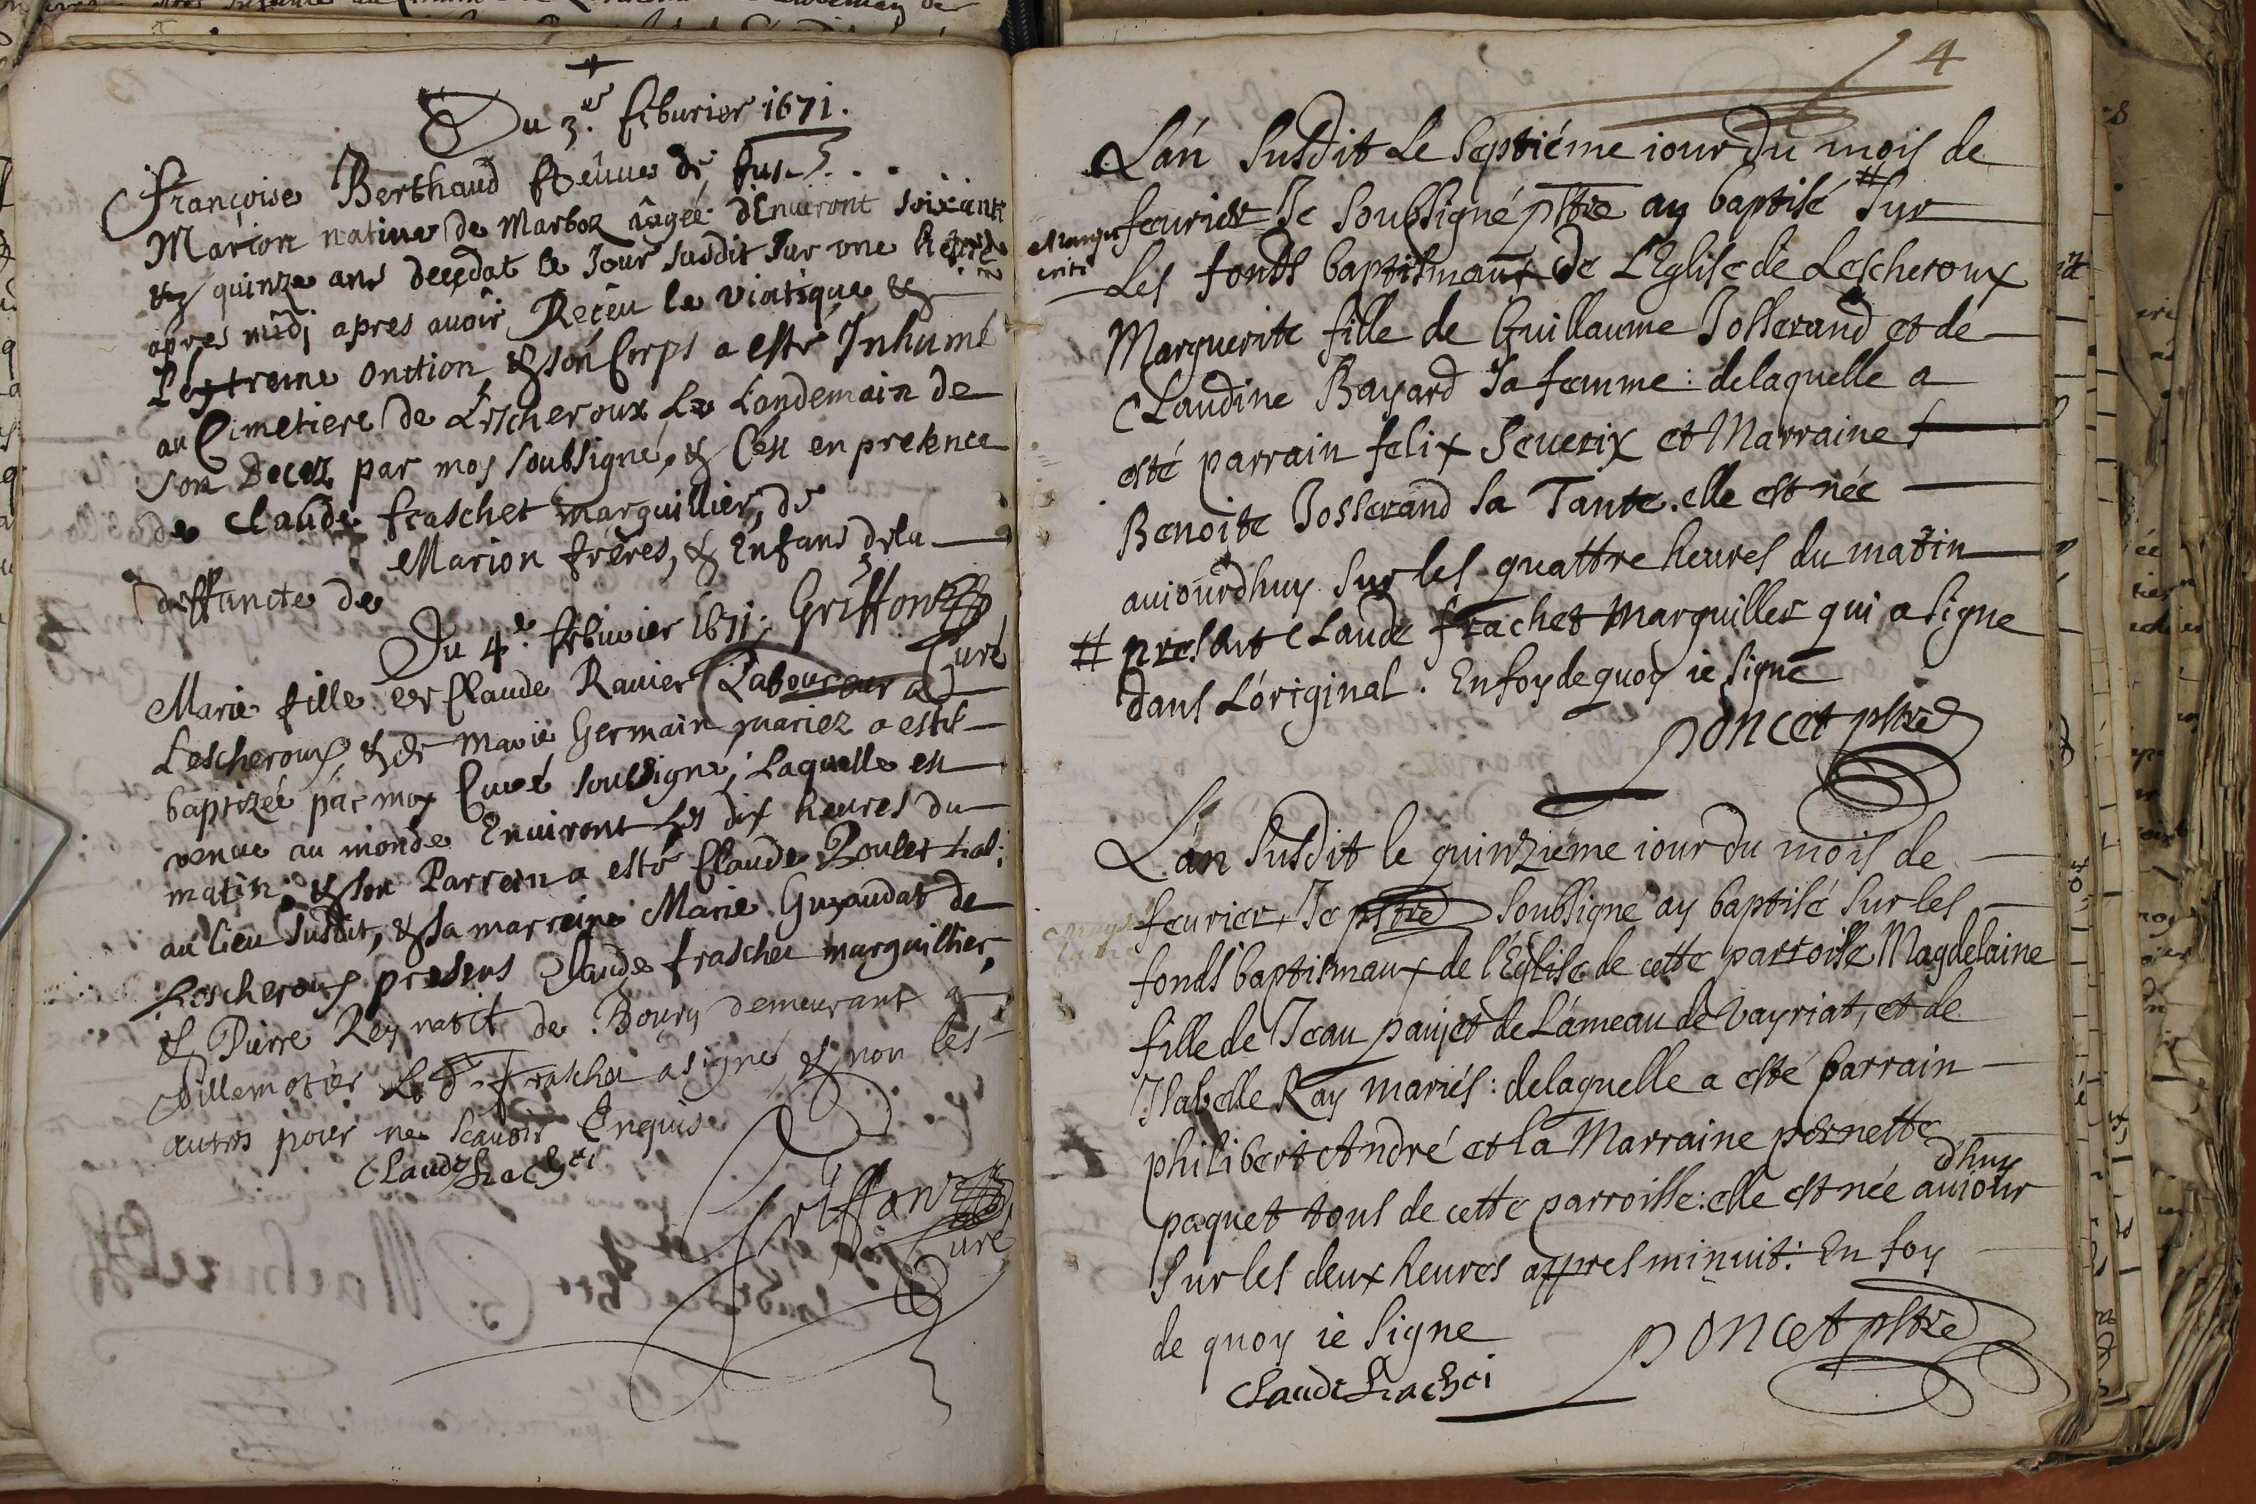 Du 3.er februrier 1671.
Françoise Berthaud veuue de fus . . .
Marion natiue de Marboz âagée d'Enuiront soixante
& quinze ans decçdat le Jour susdit sur vne heure
apres midj apres auoir Reçeu le viatique &
L'extreme onction & son Corps a esté Inhumé
au Cimetiere de Lescheroux Le Landemain de
son Decez par moy soubsigné, & C'est en presence
de Claude fraschet marguillier, de
Marion frêres, & Enfans dela
deffuncte de
Griffon
Curé
Du 4.e februier 1671.
Marie fille de Claude Rauier Laboureur a
Lescheroux, & de Marie Germain mariez a esté
baptizée par moy Curé soubsigné, Laquelle est
venue au monde Enuiront Les dix heures du
matin, & son Parrein a esté Claude Boulet hab:
au lieu susdit, & sa marreine Marie Guyaudat de
Lescheroux presens Claude fraschet marguillier,
& Pierre Rey natif de Bourg demeurant a
Villemotier Led. fraschet a signé & non les
autres pour ne scauoir Enquis
Claude frachet
Griffon
Curé
4
L'an susdit le septiéme iour du mois de
feurier Je soubsigné pstre ay baptisé # sur
Les fonds baptismaux de L'Eglise de Lescheroux
Marguerite fille de Guillaume Josserand et de
Claudine Bayard sa femme: delaquelle a
esté parrain felix Seuerix et Marraine
Benoite Josserand sa Tante. elle est née
auiourdhuy sur les quattre heures du matin
# present Claude frachet Marguiller qui a signe
dans L'original. En foy de quoy ie signe
poncet pstre
L'an susdit le quinziéme iour du mois de
feurier, Je pstre soubsigné ay baptisé sur les
fonds baptismaux de l'Eglise de cette parroisse Magdelaine
fille de Jean paujet de L'ameau de Vayriat, et de
Isabelle Ray mariés: delaquelle a esté parrain
philibert André et la Marraine pernette
paquet tous de cette parroisse: elle est née auiour
dhuy
sur les deux heures appres minuit: En foy
de quoy ie signe
poncet pstre
Claude frachet